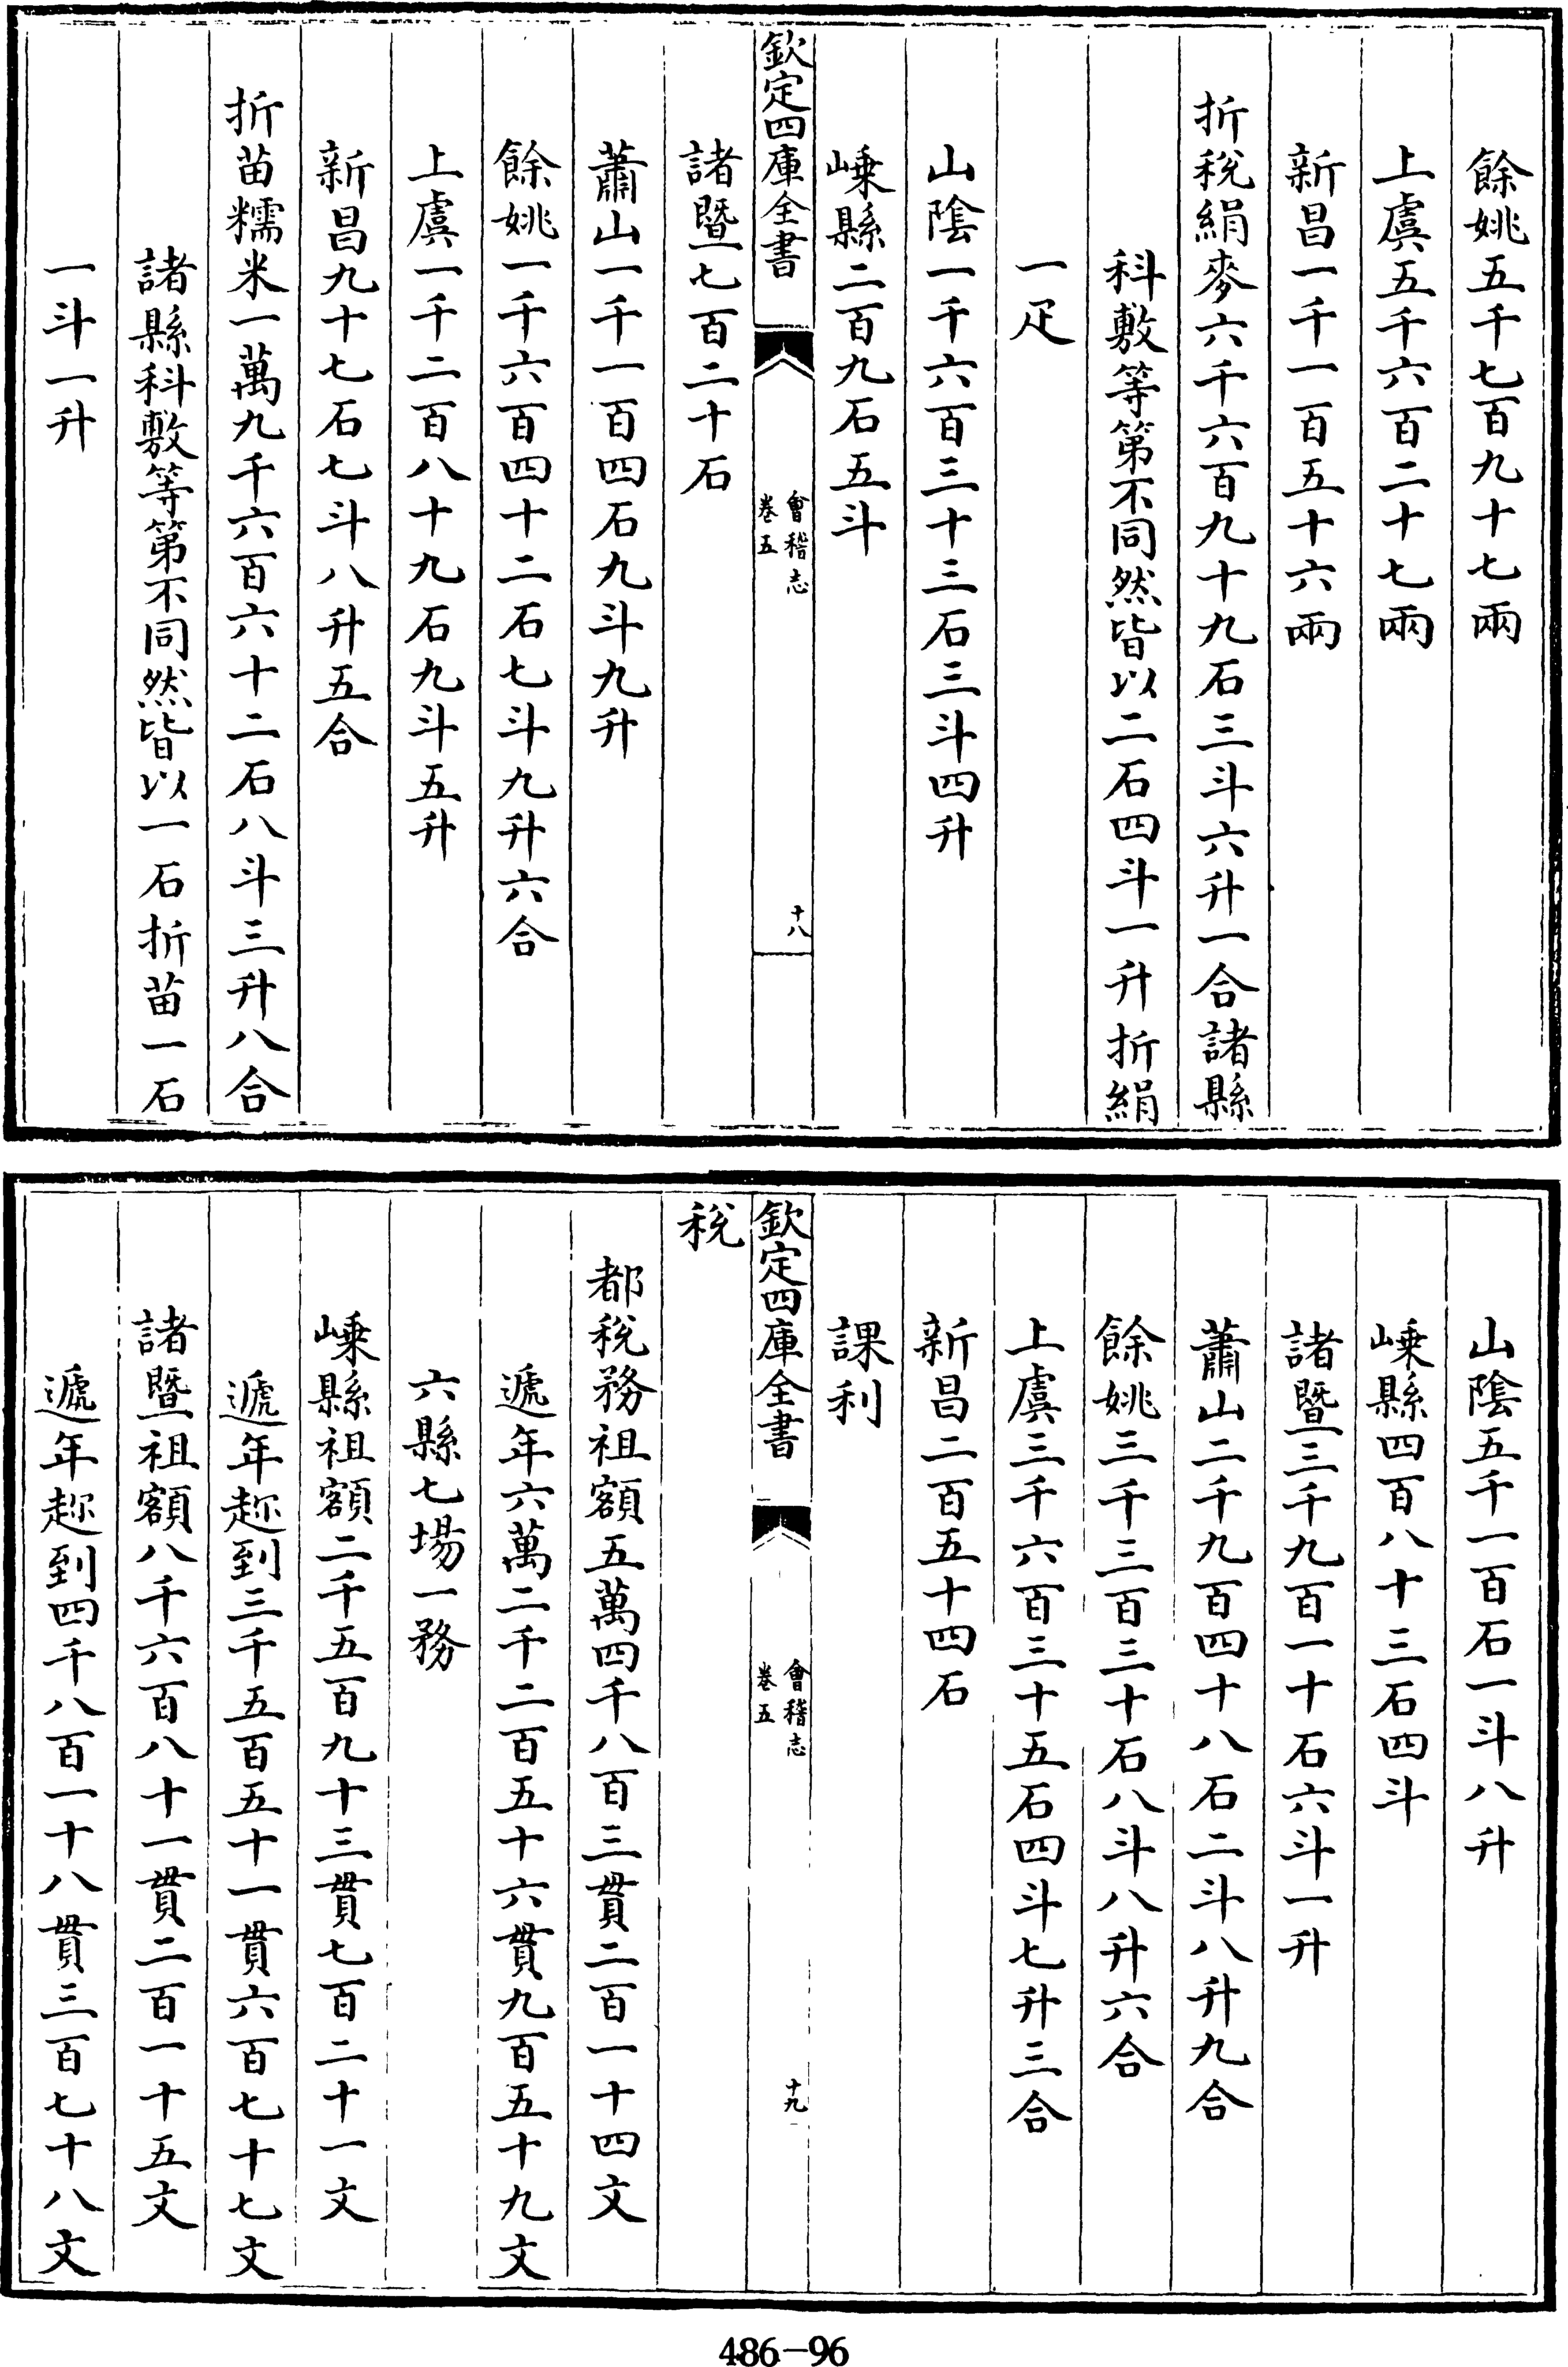 餘姚五千七百九十七兩
上虞五千六百二十七兩
新昌一千一百五十六兩
折稅絹麥六千六百九十九石三斗六升一合諸縣
科敷等第不同然皆以二石四斗一升折絹
一疋
山隂一千六百三十三石三斗四升
嵊縣二百九石五斗
欽定四庫全書
會稽志
卷五
十八
諸暨七百二十石
蕭山一千一百四石九斗九升
餘姚一千六百四十二石七斗九升六合
上虞一千二百八十九石九斗五升
新昌九十七石七斗八升五合
折苗糯米一萬九千六百六十二石八斗三升八合
諸縣科敷等第不同然皆以一石折苗一石
一斗一升
山隂五千一百石一斗八升
嵊縣四百八十三石四斗
諸暨三千九百一十石六斗一升
蕭山二千九百四十八石二斗八升九合
餘姚三千三百三十石八斗八升六合
上虞三千六百三十五石四斗七升三合
新昌二百五十四石
課利
欽定四庫全書
會稽志
卷五
十九
稅
都稅務祖額五萬四千八百三貫二百一十四文
遞年六萬二千二百五十六貫九百五十九文
六縣七場一務
嵊縣祖額二千五百九十三貫七百二十一文
遞年趂到三千五百五十一貫六百七十七文
諸暨祖額八千六百八十一貫二百一十五文
遞年趂到四千八百一十八貫三百七十八文
486-96